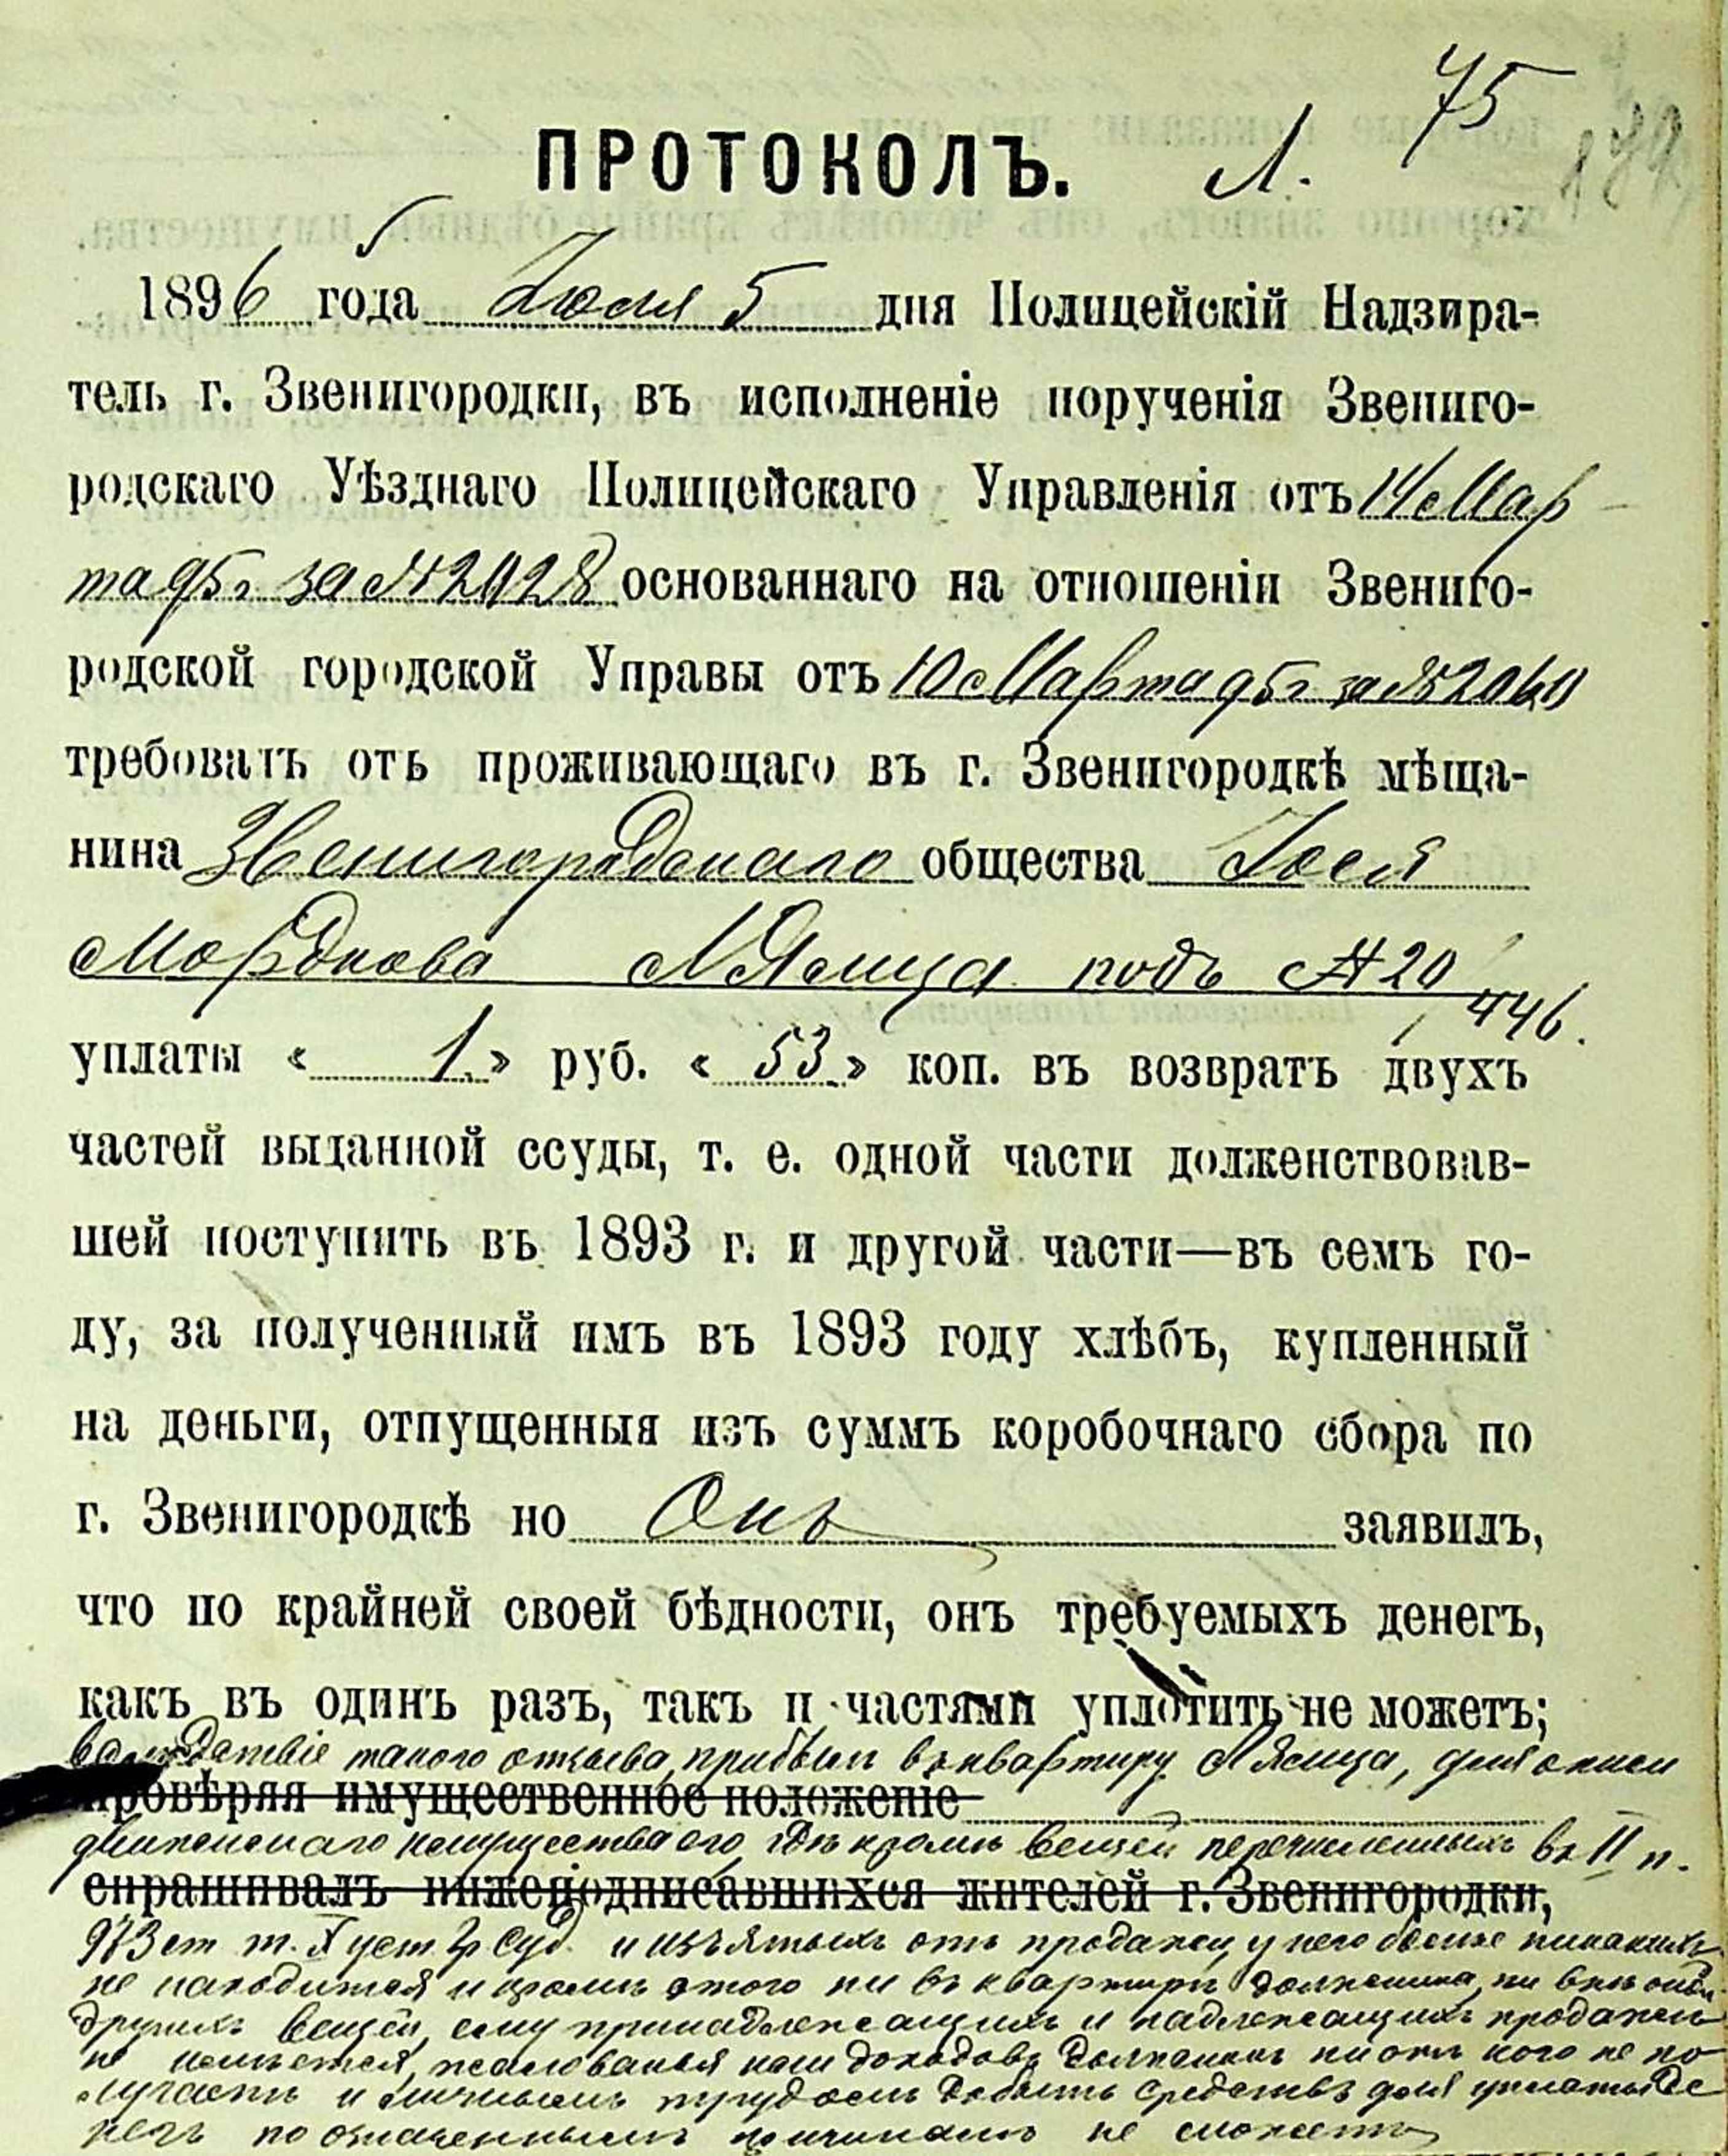 75
ПРОТОКОЛЪ. Л.
1896 года Июля 5 дня Полицейскій Надзира-
тель г. Звенигородки, въ исполненіе порученія Звениго-
родскаго Уѣзднаго Полицейскаго Управленія отъ 14 Мар
та 95 г за № 2028 основаннаго на отношеніи Звениго-
родской городской Управы отъ 10 Марта 95 г за №
требовать отъ проживающаго въ г. Звенигородкѣ мѣща-
нина Звенигородскаго общества
Мордкова под № 20
446.
уплаты « 1. » руб. « 53 » коп. въ возвратъ двухъ
частей выданной ссуды, т. е. одной части долженствовав-
шей поступить въ 1893 г. и другой части—въ семъ го-
ду, за полученный имъ въ 1893 году хлѣбъ, купленный
на деньги, отпущенныя изъ суммъ коробочнаго сбора по
г. Звенигородкѣ но Онъ заявилъ,
что по крайней своей бѣдности, онъ требуемыхъ денегъ,
какъ въ одинъ разъ, такъ и частями уплотить не можетъ;
такого отзыва, прибылъ въ квартиру Мясица, для описи
провѣряя имущественное положеніе
движимаго имущества его, гдѣ кромѣ вещей перечисленныхъ въ II п.
спрашивалъ нижеподписавшихся жителей г. Звенигородки,
973 ст т. X уст Гр Суд. и изъятыхъ отъ продажи, у него болѣе никакихъ
не находится и кромѣ этого ни въ квартирѣ должника, ни внѣ оной
другихъ вещей, ему принадлежащихъ и надлежащихъ продажи
не имѣется, жалованья или доходовъ должникъ ни отъ кого не по
лучаетъ и личнымъ трудомъ добыть средствъ для уплаты де
негъ по означеннымъ причинамъ не можетъ